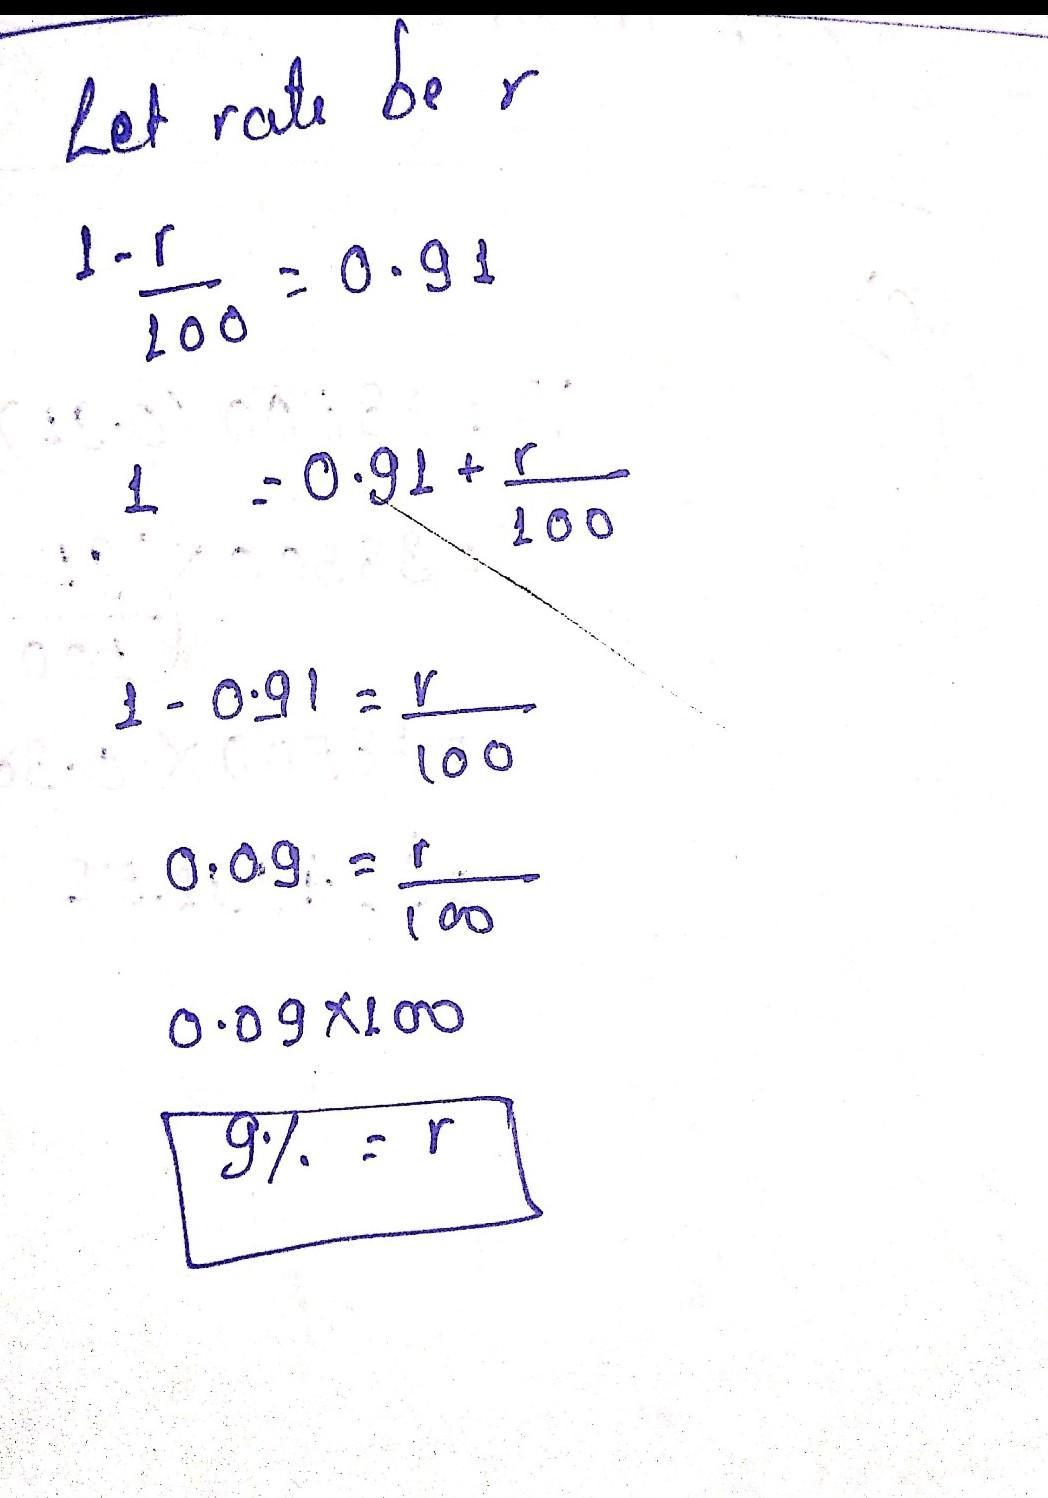 Let rate be r
1 - r/100 = 0.91
1 = 0.91 + r/100
1 - 0.91 = r/100
0.09 = r/100
0.09 × 100
9% = r